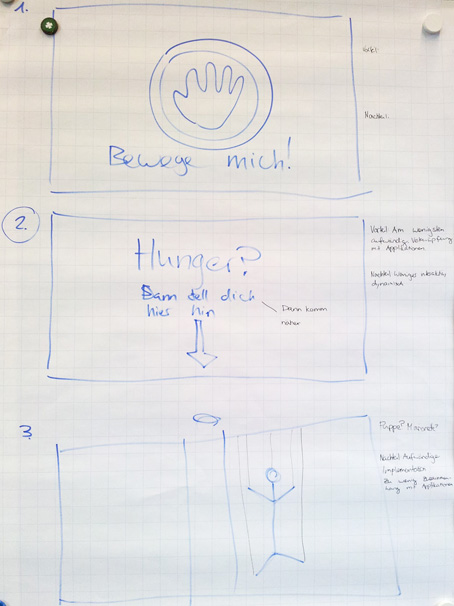 1.
Bewege mich!
Vorteil:
Nachteil:
2.
Hunger?
Dann stell dich
hier hin
Dann komm
näher
Vorteil: Am wenigsten
aufwändig, Verknüpfung
mit Applikationen
Nachteil: Weniger
dynamisch
3.
Puppe? Marionette?
Nachteil: Aufwändige
Implementation
Zu wenig
mit Applikationen